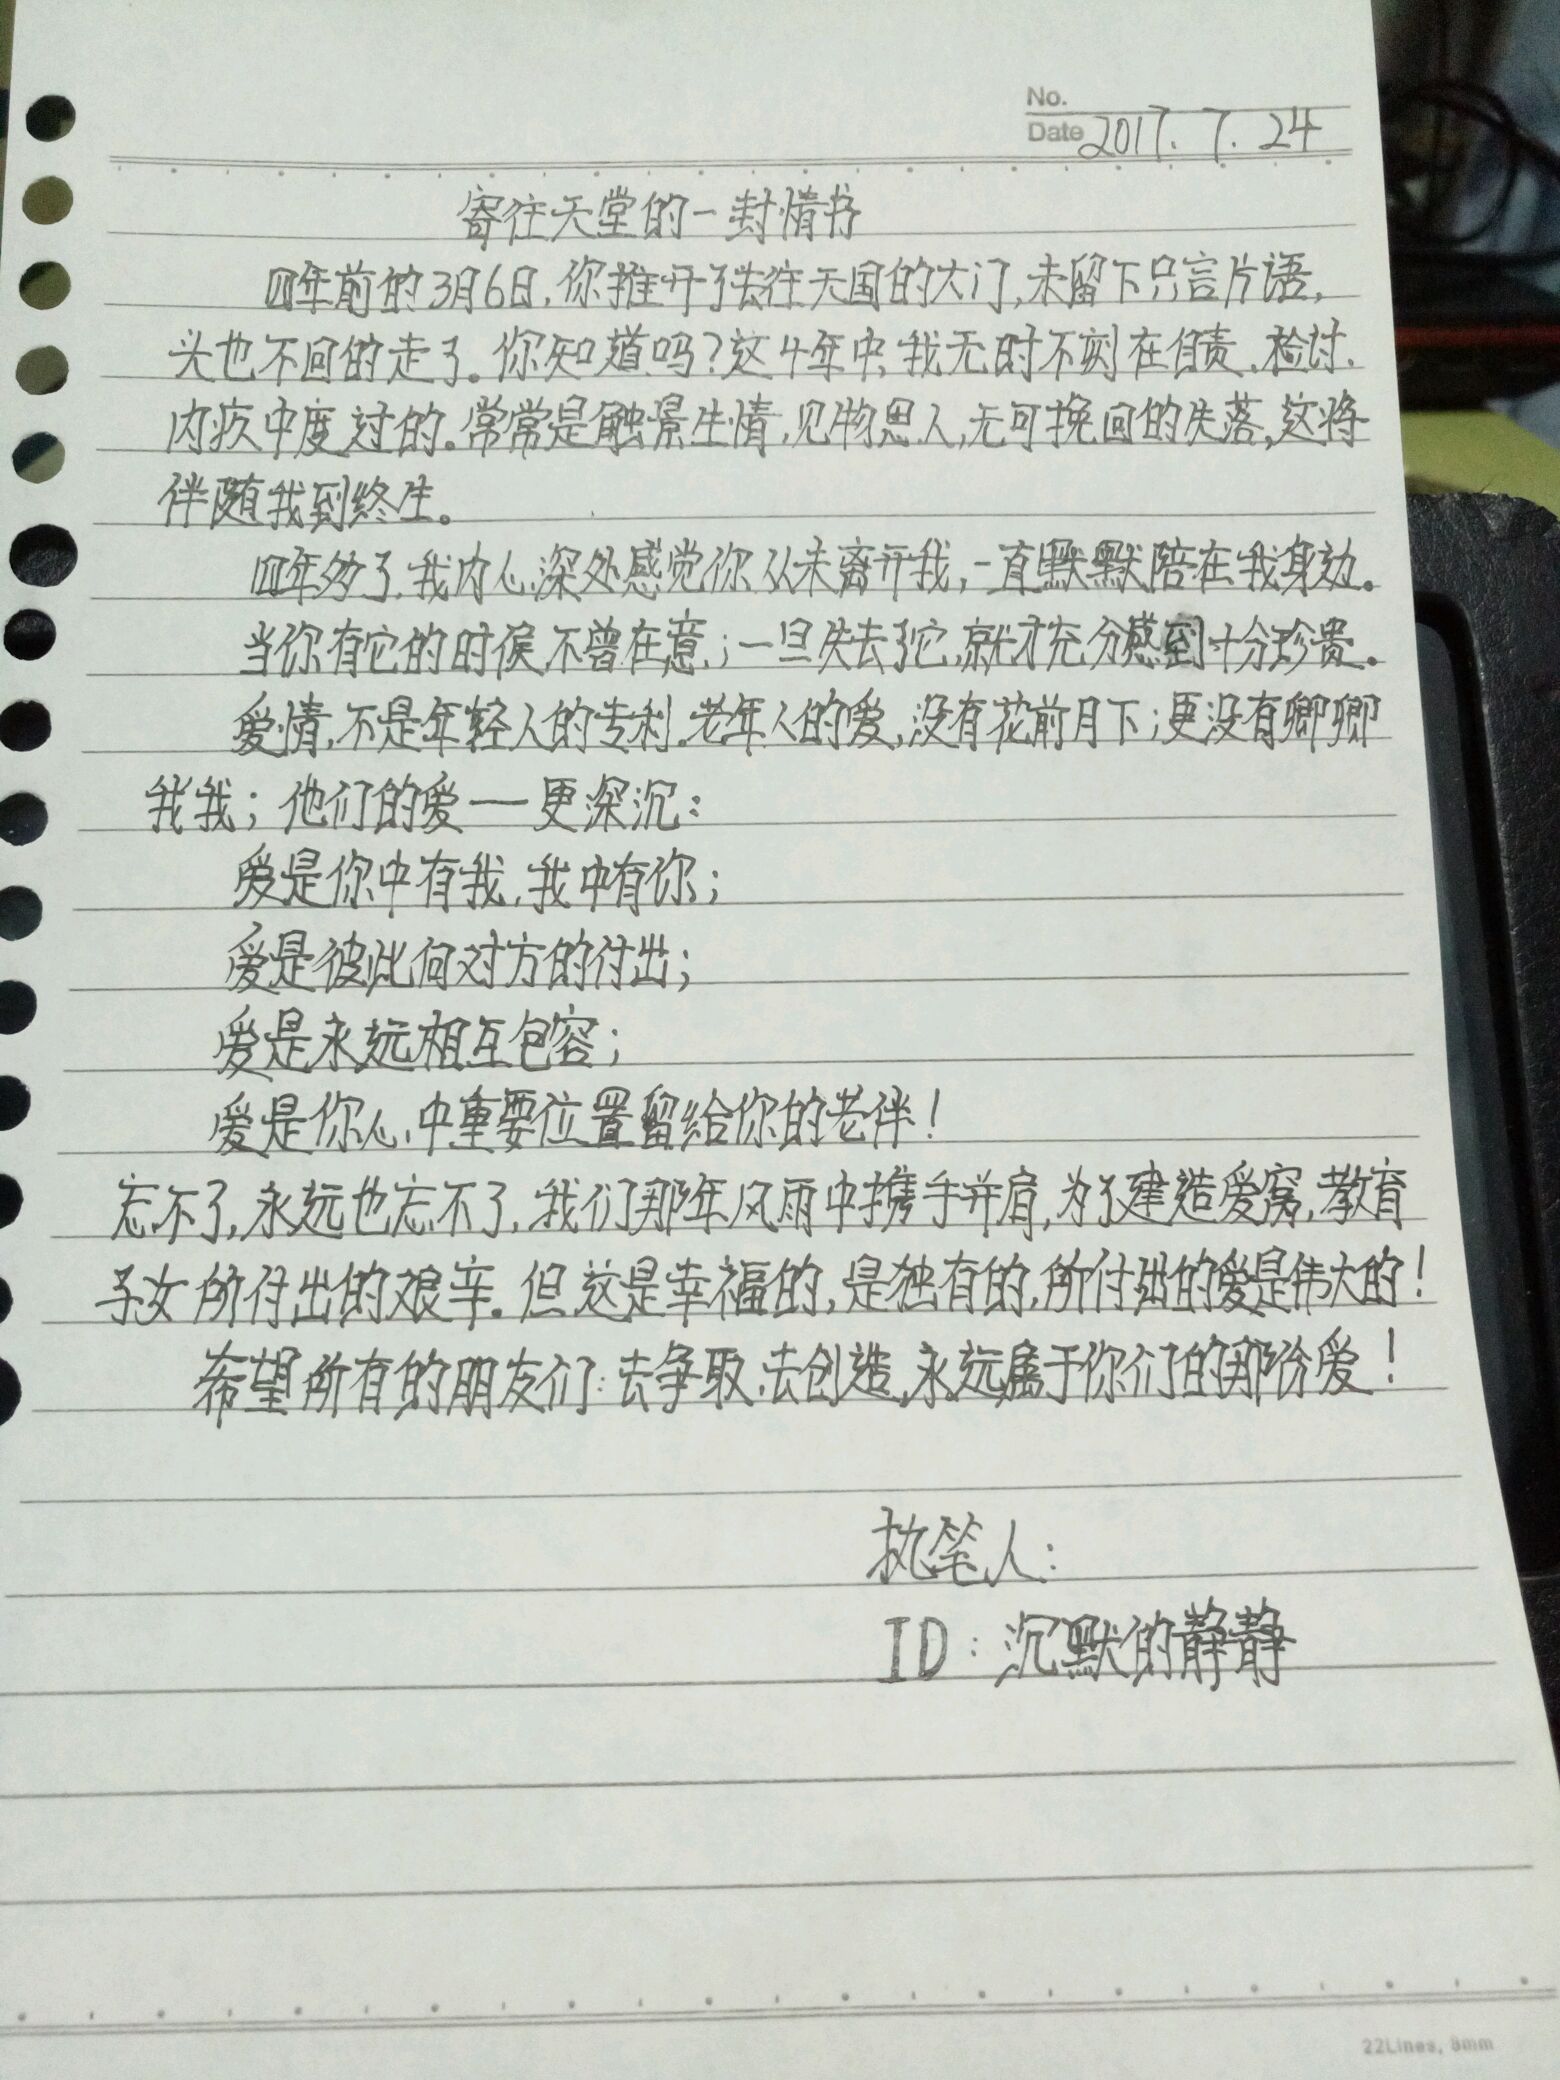 No.
Date 2017.7.24
寄往天堂的一封情书
四年前的3月6日,你推开了去往天国的大门,未留下只言片语,
头也不回的走了。你知道吗?这4年中,我无时不刻在自责、检讨、
内疚中度过的。常常是触景生情,见物思人,无可挽回的失落,这将
伴随我到终生。
四年多了,我内心深处感觉你从未离开我,一直默默陪在我身边。
当你有它的时侯不曾在意;一旦失去了它,就才充分感到十分珍贵。
爱情,不是年轻人的专利。老年人的爱,没有花前月下;更没有卿卿
我我;他们的爱——更深沉:
爱是你中有我,我中有你;
爱是彼此向对方的付出;
爱是永远相互包容;
爱是你心中重要位置留给你的老伴!
忘不了,永远也忘不了,我们那年风雨中携手并肩,为了建造爱窝,教育
子女所付出的艰辛。但这是幸福的,是独有的,所付出的爱是伟大的!
希望所有的朋友们:去争取、去创造,永远属于你们的那份爱!
执笔人:
ID:沉默的静静
22Lines, 8mm